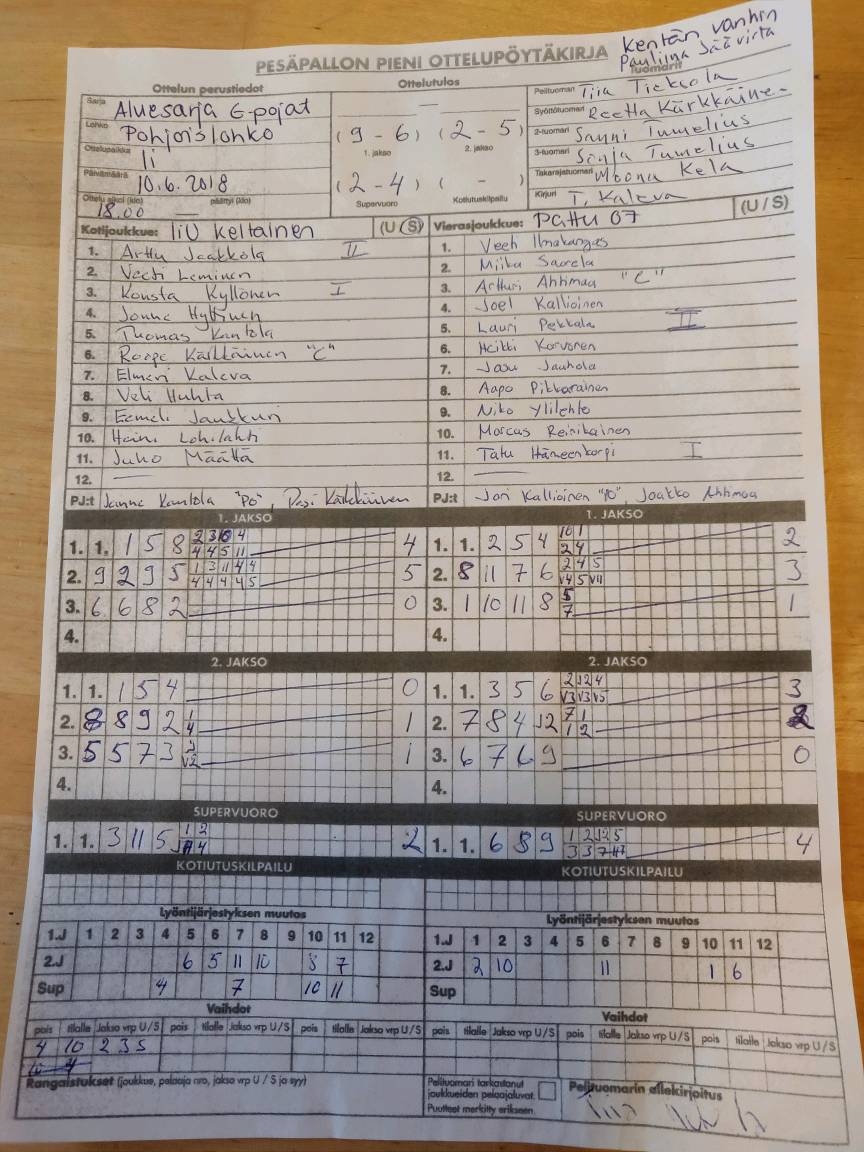 kentän vanhin
Pauliina Jäävirta
PESÄPALLON PIENI OTTELUPÖYTÄKIRJA
Ottelun perustiedot
Sarja Aluesarja G-pojat
Lohko Pohjoislohko
Ottelupaikka Ii
Päivämäärä 10.6.2018
Ottelu alkoi (klo) 18.00 — päättyi (klo)
Ottelutulos
—
(9 - 6) (2 - 5)
1. jakso 2. jakso
(2 - 4) ( - )
Supervuoro Kotiutuskilpailu
Tuomarit
Pelituomari Tiia Tiekola
Syöttötuomari Reetta Kärkkäine-
2-tuomari Sanni Tumelius
3-tuomari Sonja Tumelius
Takarajatuomari Moona Kela
Kirjuri T. Kaleva
Kotijoukkue: IiU Keltainen (U / S)
1. Arttu Jaakkola II
2. Veeti Leminen
3. Konsta Kyllönen I
4. Jonne Hyttinen
5. Thomas Kantola
6. Roope Kärkkäinen "C"
7. Elmeri Kaleva
8. Veli Huhta
9. Eemeli Jaukkuri
10. Heini Lohilahti
11. Juho Määttä
12. —
PJ:t Janne Kantola "PO", Pasi Kärkkäinen
Vierasjoukkue: PattU 07 (U / S)
1. Veeti Ilmakangas
2. Miika Saarela
3. Artturi Ahhmaa "C"
4. Joel Kallioinen
5. Lauri Pekkala II
6. Heikki Korvonen
7. Jasu Jauhola
8. Aapo Pikkarainen
9. Niko Ylilehto
10. Marcus Reinikainen
11. Tatu Hämeenkorpi I
12. —
PJ:t Jari Kallioinen "PO", Jaakko Ahhmaa
1. JAKSO
1. 1. 1 5 8 2 3 6 4 4
4 4 5 11
2. 9 2 9 5 1 3 11 4 4 5
4 4 4 4 5
3. 6 6 8 2 0
4.
1. JAKSO
1. 1. 2 5 4 10 1 2
2 4
2. 8 11 7 6 2 4 5 3
V4 5 V11
3. 1 10 11 8 5 1
7
4.
2. JAKSO
1. 1. 1 5 4 0
2. 8 8 9 2 1 1
4
3. 5 5 7 3 1
V2
4.
2. JAKSO
1. 1. 3 5 6 2 J2 4 3
V3 V3 V5
2. 7 8 4 J2 7 1 2
1 2
3. 6 7 6 9 0
4.
SUPERVUORO
1. 1. 3 11 5 1 2 2
4
SUPERVUORO
1. 1. 6 8 9 1 2 J2 5 4
3 3 7
KOTIUTUSKILPAILU
KOTIUTUSKILPAILU
Lyöntijärjestyksen muutos
1.J 1 2 3 4 5 6 7 8 9 10 11 12
2.J 6 5 11 10 8 7
Sup 4 7 10 11
Lyöntijärjestyksen muutos
1.J 1 2 3 4 5 6 7 8 9 10 11 12
2.J 2 10 11 1 6
Sup
Vaihdot
pois tilalle Jakso vrp U/S pois tilalle Jakso vrp U/S pois tilalle Jakso vrp U/S
4 10 2 3 S
Vaihdot
pois tilalle Jakso vrp U/S pois tilalle Jakso vrp U/S pois tilalle Jakso vrp U/S
Rangaistukset (joukkue, pelaaja nro, jakso vrp U / S ja syy)
Pelituomari tarkastanut
joukkueiden pelaajaluvat.
Puutteet merkitty erikseen.
Pelituomarin allekirjoitus